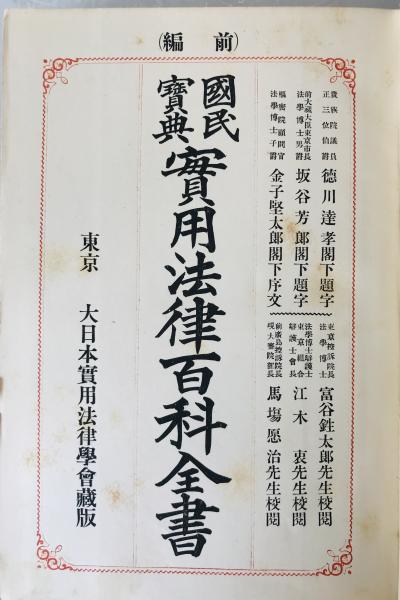 （前編）
貴族院議員
正三位伯爵
德川達孝閣下題字
前大藏大臣東京市長
法學博士男爵
坂谷芳郎閣下題字
樞密院顧問官
法學博士子爵
金子堅太郎閣下序文
東京控訴院長
法學博士
富谷鉎太郎先生校閱
法學博士辯護士
東京組合
辯護士會長
江木衷先生校閱
前廣島控訴院長
現大審院部長
馬塲愿治先生校閱
國民
寶典
實用法律百科全書
東京 大日本實用法律學會藏版